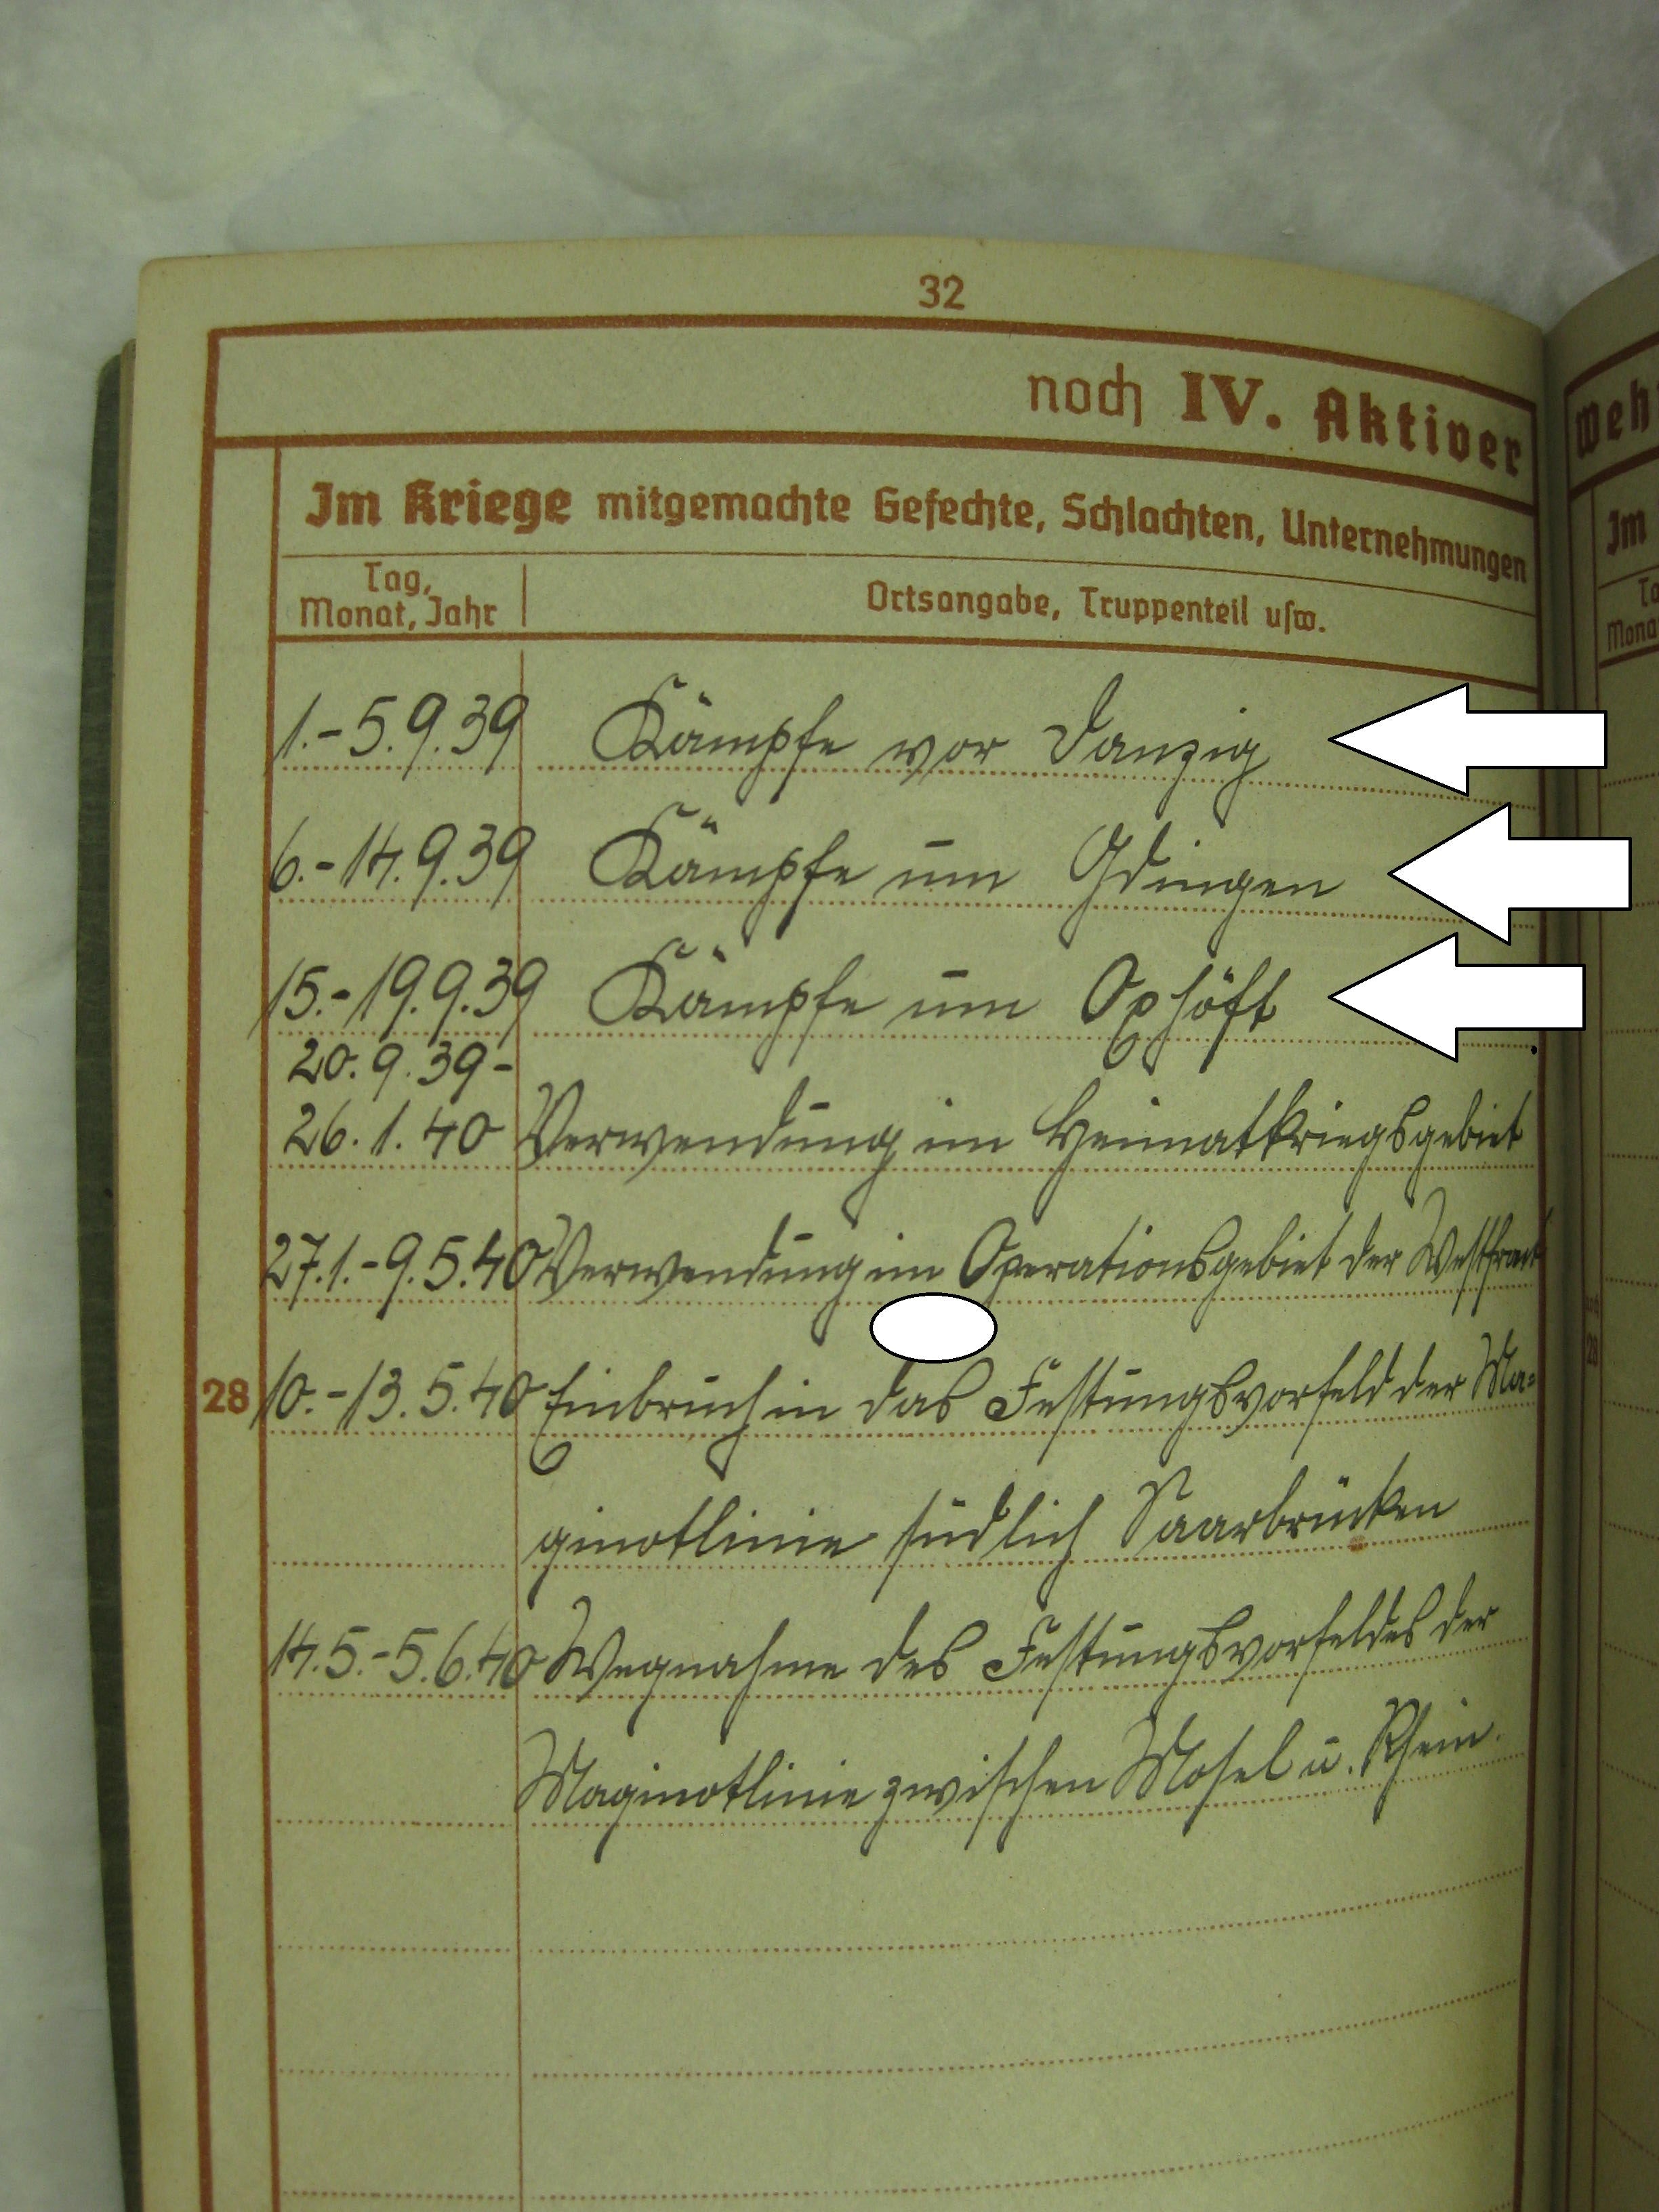 32
noch IV. Aktiver
Im Kriege mitgemachte Gefechte, Schlachten, Unternehmungen
Tag,
Monat, Jahr
Ortsangabe, Truppenteil usw.
1.-5.9.39 Kämpfe vor Danzig
6.-14.9.39 Kämpfe um Gdingen
15.-19.9.39 Kämpfe um Oxhöft
20.9.39-
26.1.40 Verwendung im Heimatkriegsgebiet
27.1.-9.5.40 Verwendung im Operationsgebiet der Westfront
28 10.-13.5.40 Einbruch in das Festungsvorfeld der Ma-
ginotlinie südlich Saarbrücken
14.5.-5.6.40 Wegnahme des Festungsvorfeldes der
Maginotlinie zwischen Mosel u. Rhein.
Weh
Im
28